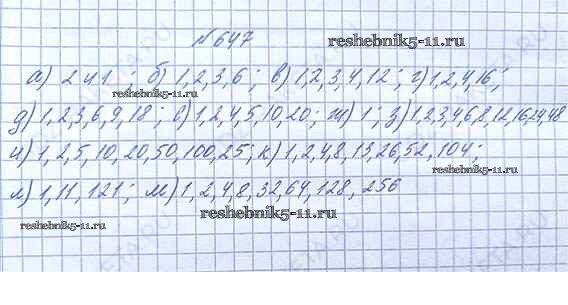 №647
reshebnik5-11.ru
а) 2 и 1 ; б) 1,2,3,6 ; в) 1,2,3,4,12 ; г) 1,2,4,16 ;
reshebnik5-11.ru
д) 1,2,3,6,9,18 ; е) 1,2,4,5,10,20 ; ж) 1 ; з) 1,2,3,4,6,8,12,16,24,48
и) 1,2,5,10,20,50,100,25 ; к) 1,2,4,8,13,26,52,104 ;
л) 1,11,121 ; м) 1,2,4,8,32,64,128,256
reshebnik5-11.ru
reshebnik5-11.ru